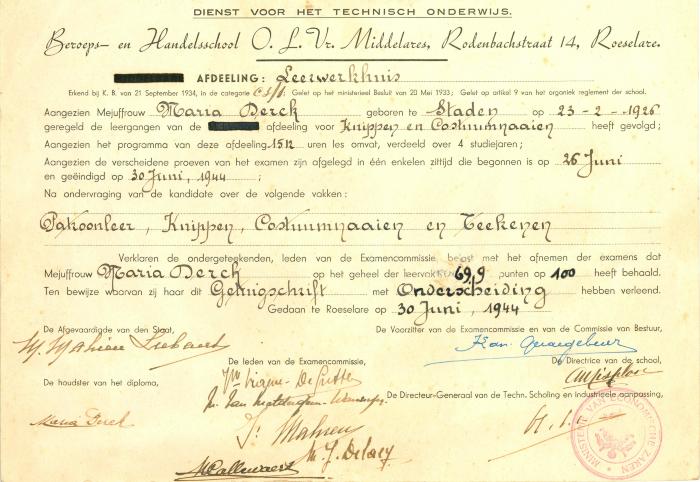 DIENST VOOR HET TECHNISCH ONDERWIJS.
Beroeps- en Handelsschool O. L. Vr. Middelares, Rodenbachstraat 14, Roeselare.
AFDEELING: Leerwerkhuis
Erkend bij K. B. van 21 September 1934, in de categorie Gelet op het ministerieel Besluit van 20 Mei 1933; Gelet op artikel 9 van het organiek reglement der school.
Aangezien Mejuffrouw Maria Derck geboren te Staden op 23-2-1926
geregeld de leergangen van de afdeeling voor Knippen en Costuumnaaien heeft gevolgd;
Aangezien het programma van deze afdeeling 1512 uren les omvat, verdeeld over 4 studiejaren;
Aangezien de verscheidene proeven van het examen zijn afgelegd in één enkelen zittijd die begonnen is op 26 Juni
en geëindigd op 30 Juni, 1944 ;
Na ondervraging van de kandidate over de volgende vakken:
Patroonleer, Knippen, Costuumnaaien en Teekenen
Verklaren de ondergeteekenden, leden van de Examencommissie, belast met het afnemen der examens dat
Mejuffrouw Maria Derck op het geheel der leervakken 69,9 punten op 100 heeft behaald.
Ten bewijze waarvan zij haar dit Getuigschrift met Onderscheiding hebben verleend.
Gedaan te Roeselare op 30 Juni, 1944
De Afgevaardigde van den Staat, De Voorzitter van de Examencommissie en van de Commissie van Bestuur,
De leden van de Examencommissie, De Directrice van de school,
De houdster van het diploma, De Directeur-Generaal van de Techn. Scholing en Industrieele aanpassing,
Maria Derck
J. Mahieu
MINISTERIE VAN ECONOMISCHE ZAKEN